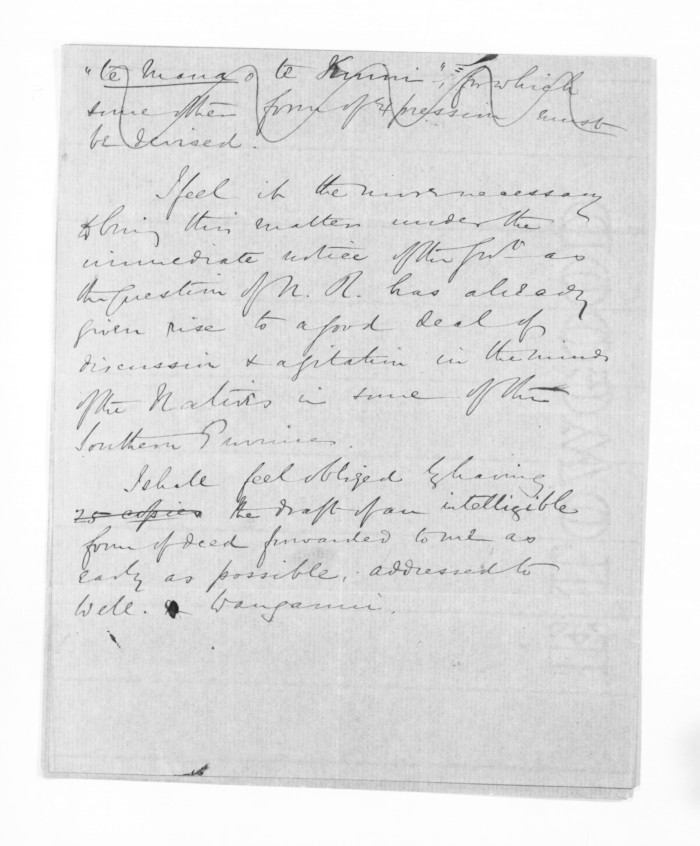 "te Mana o te Kuini", for which
some other form of expression must
be devised.
I feel it the more necessary
to bring this matter under the
immediate notice of the Govt as
the question of N. R. has already
given rise to a good deal of
discussion & agitation in the minds
of the Natives in some of the
Southern Provinces.
I shall feel obliged by having
25 copies the draft of an intelligible
form of deed forwarded to me as
early as possible, addressed to
Well. & Wanganui.